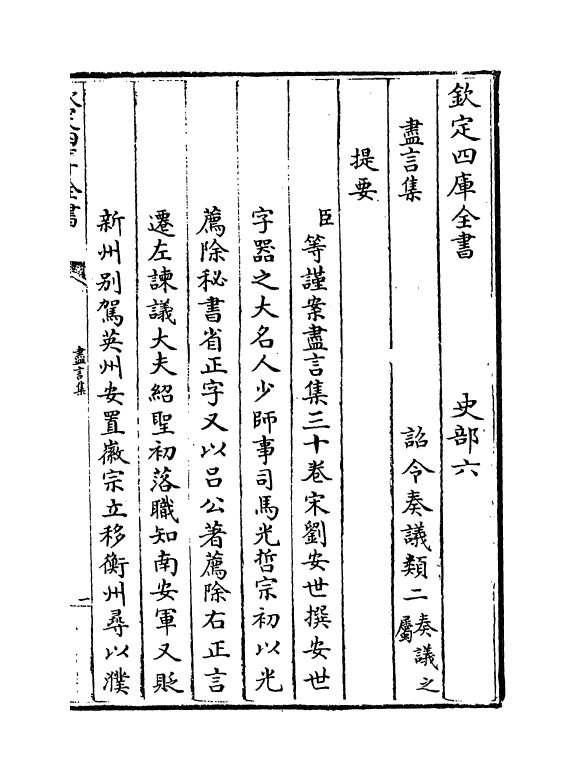 欽定四庫全書　史部六
盡言集　詔令奏議類二奏議之屬
提要
臣等謹案盡言集三十卷宋劉安世撰安世
字器之大名人少師事司馬光哲宗初以光
薦除秘書省正字又以呂公著薦除右正言
遷左諫議大夫紹聖初落職知南安軍又貶
新州別駕英州安置徽宗立移衡州尋以濮
欽定四庫全書
盡言集